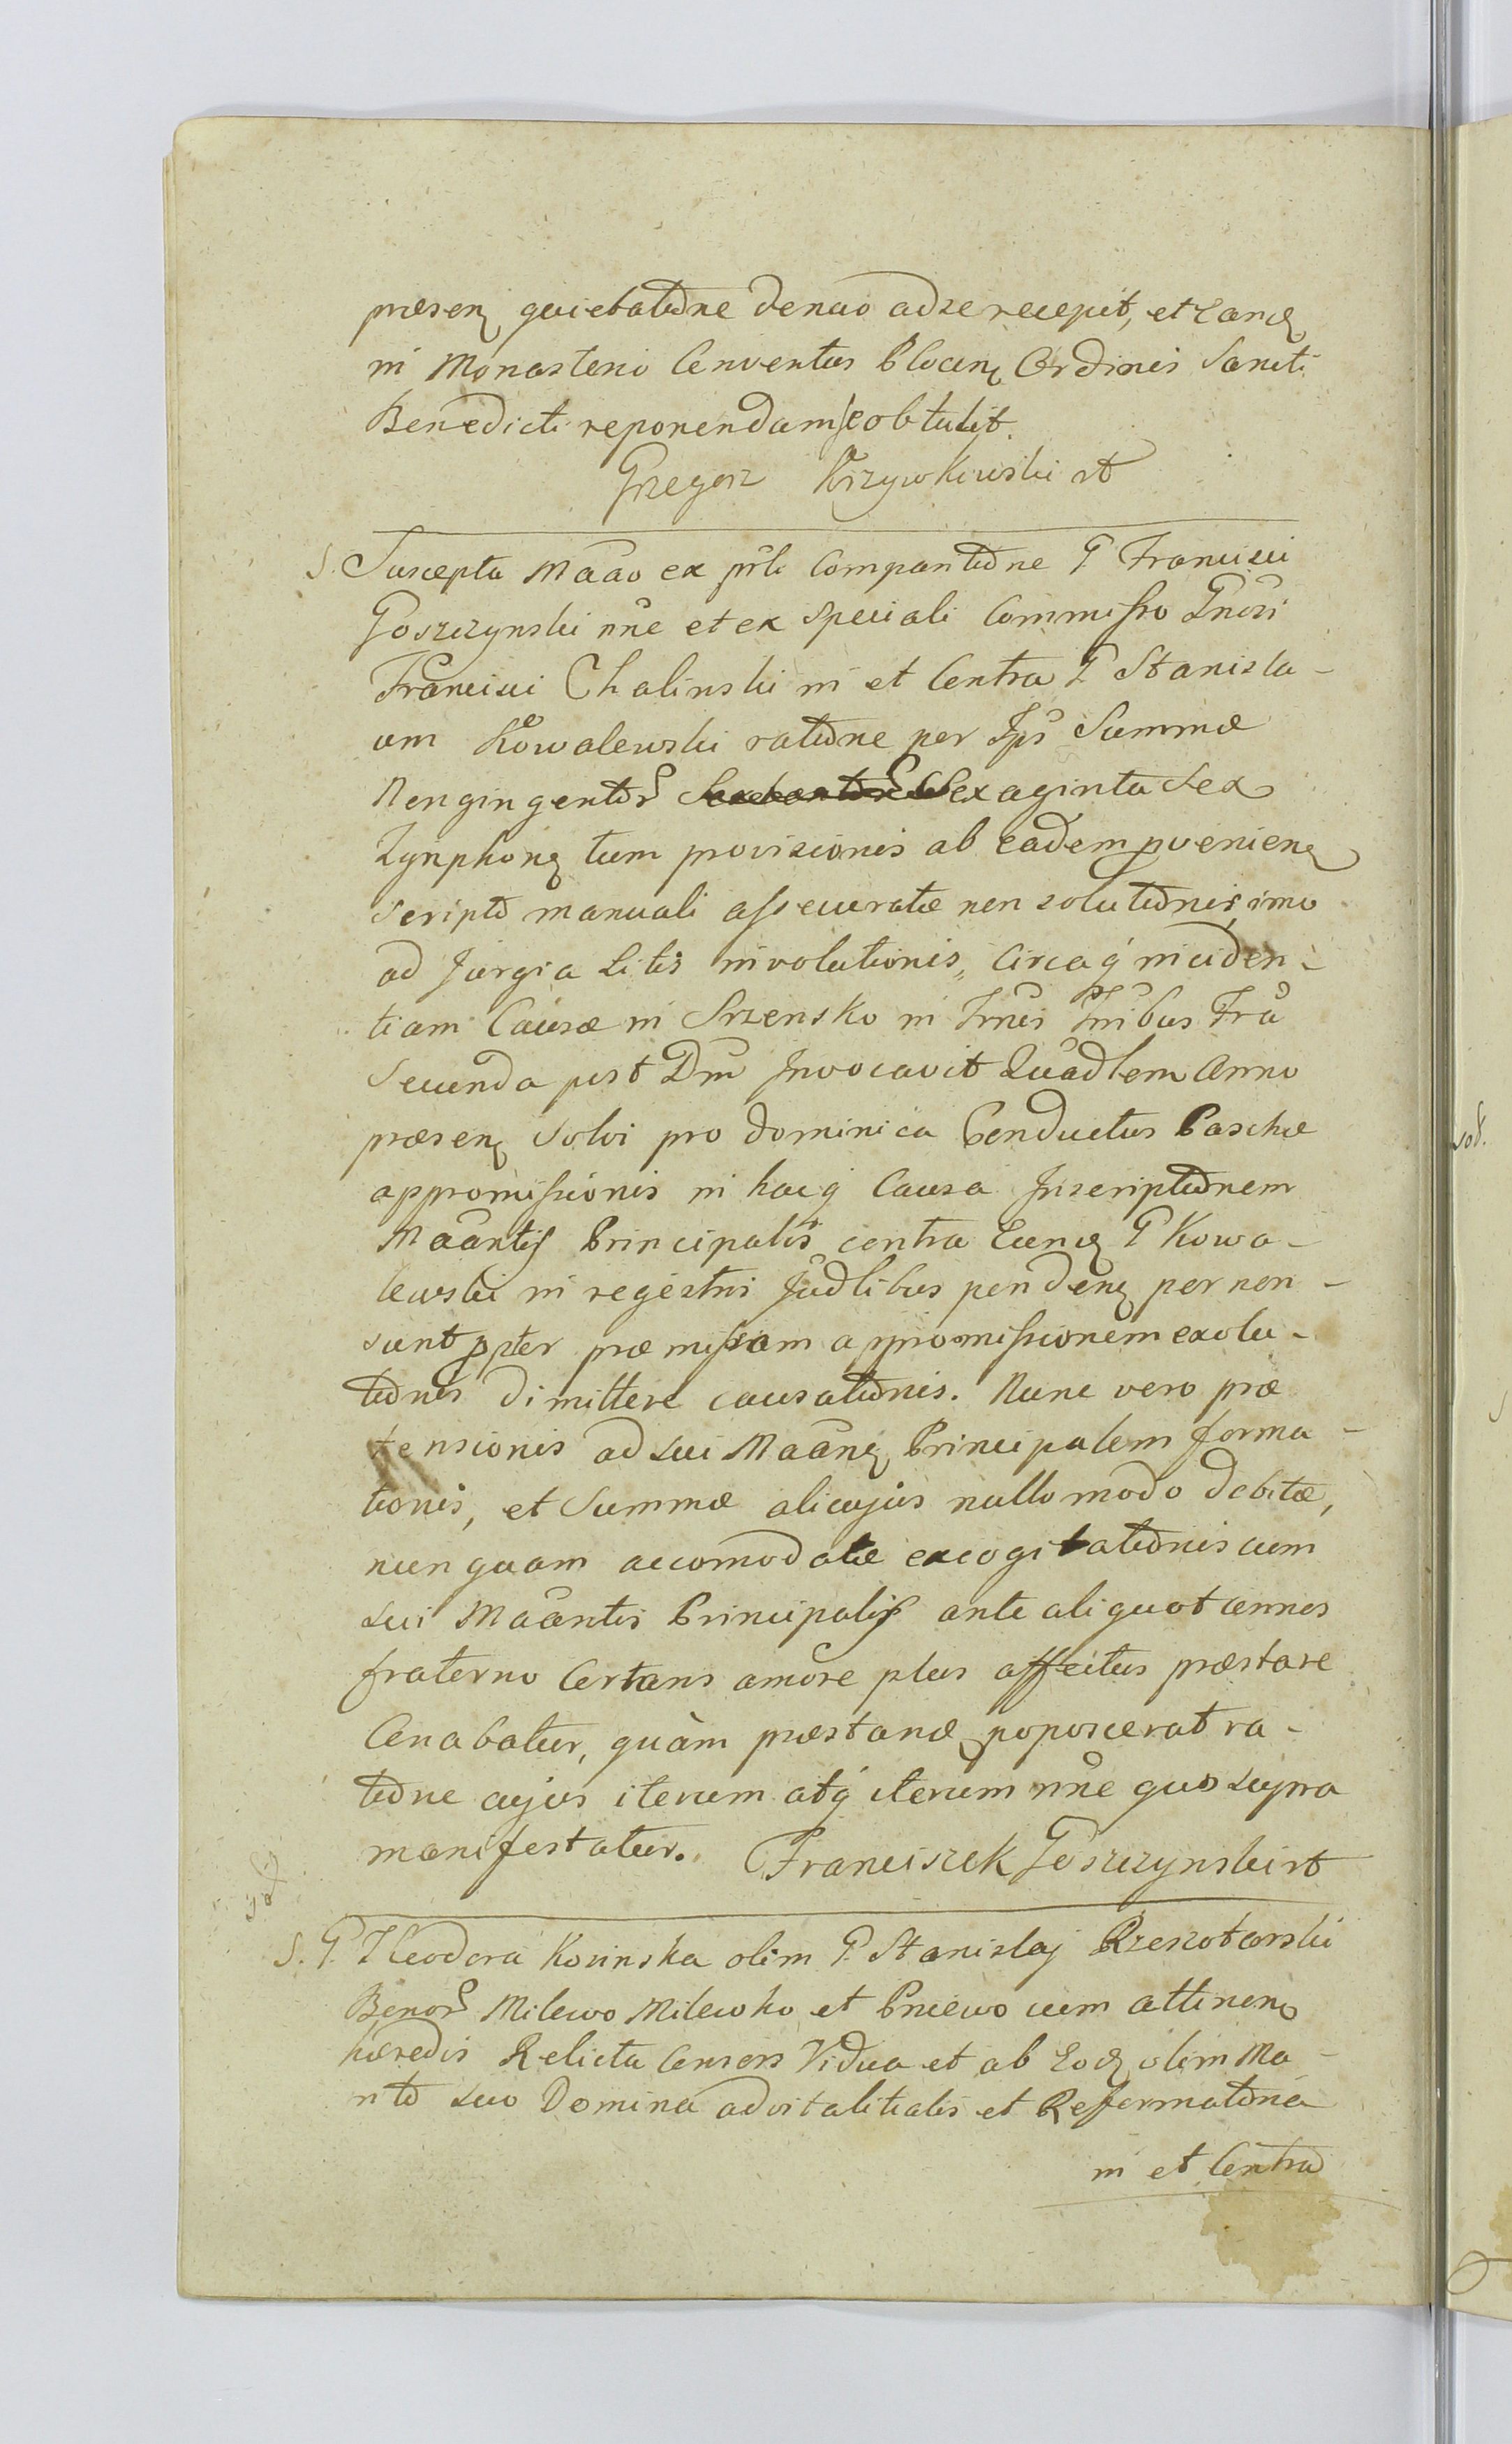 præsenꝫ quietatõne denuo ad se recepit, et eandꝫ
in Monasterio Conventus Plocenꝫ Ordinis Sancti
Benedicti reponendam se obtulit.
Grzegorz Krzywkowski rt
S. Suscepta Mãão ex prli Comparitiõne G Francisci
Goszczynski nñe et ex speciali Commisso Gnosi
Francisci Chalinski in et Contra G Stanisla-
um Kowalewski ratiõne per Ips Summæ
Nongingentor Sexaginta Sex
Tynphonꝫ tum provisionis ab eadem pvenienꝫ
Scripto manuali assecuratæ non solutiõnis, imo
ad Jurgia Litis involutionis, Circaq inciden-
tiam Causæ in Srzensko in Trnis Tribus Fra
Secunda post Dm Invocavit Quadlem Anno
præsenꝫ Solvi pro dominica Conductus Paschæ
appromissionis in hacq Causa Inscriptiõnem
Mããntis Principalis contra Eundꝫ G Kowa-
lewski in regestris Judlibus pendenꝫ per non-
sunt ppter præmissam appromissionem exolu-
tiõnis dimittere causatiõnis. Nunc vero præ
tensionis ad sui Mããnꝫ Principalem forma-
tionis, et Summæ alicujus nullo modo debitæ,
nunquam accomodatæ excogitatiõnis cum
sui Mããntis Principalis ante aliquot annos
fraterno Certans amore plus affectus præstare
Conabatur, quàm præstandꝫ poposcerat ra-
tiõne cujus iterum atq iterum nñe quo supra
manifestatur. Franciszek Goszczynski rt
S. G. Theodora Kosinska olim G. Stanislaj Rzeszotarski
Bonor Milewo Milewko et Pniewo cum attinenꝫ
hæredis Relicta Consors Vidua et ab Eodꝫ olim Ma-
rito suo Domina advitalitialis et Reformatõria
in et Contra